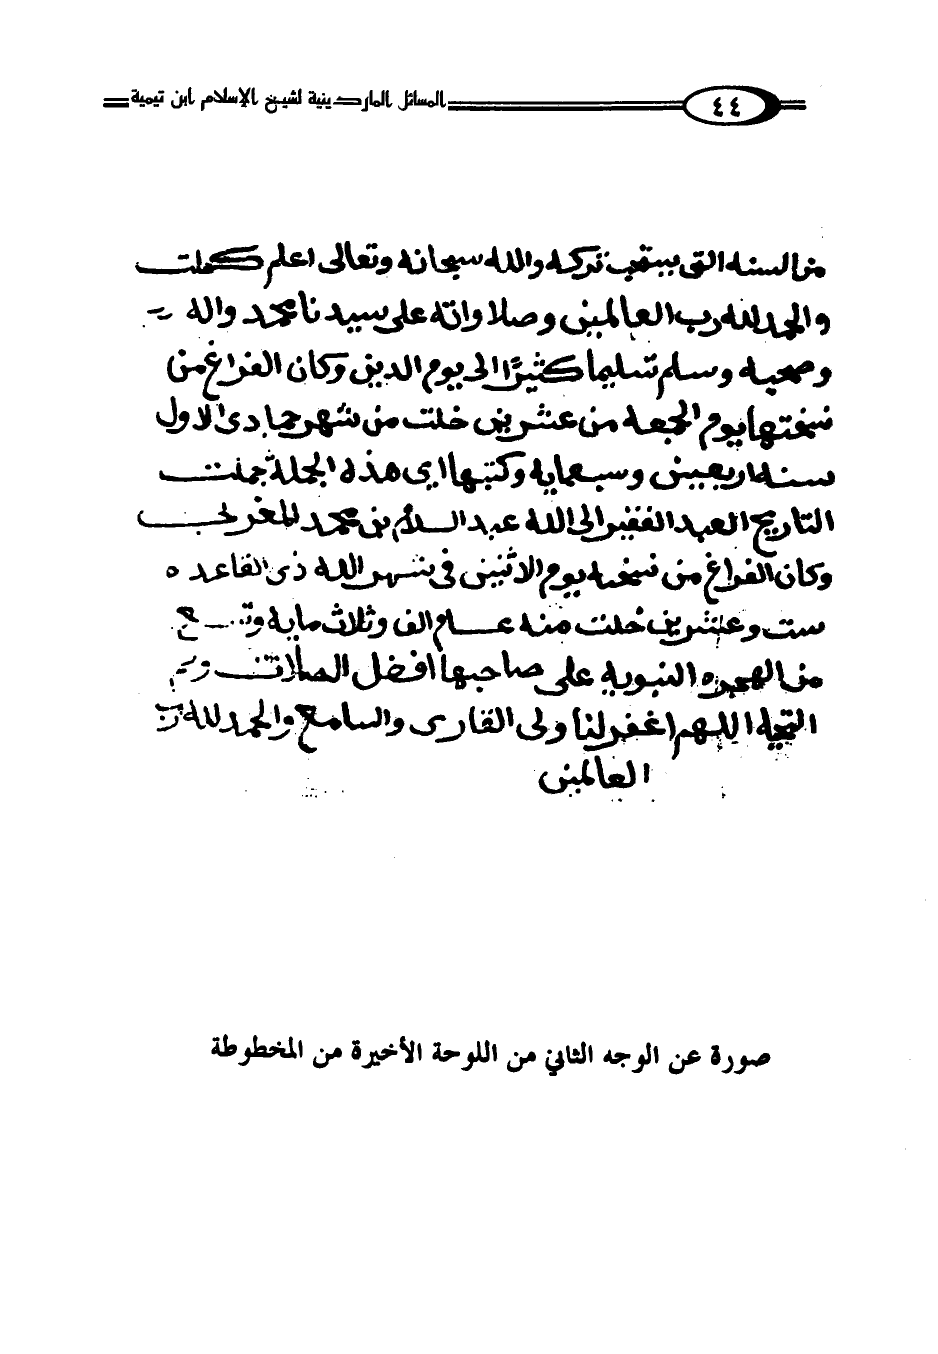 ٤٤ المسائل الماردينية لشيخ الإسلام ابن تيمية
من السنه التي ينبغي تركه والله سبحانه وتعالى اعلم كملت
والحمد لله رب العالمين وصلاواته على سيدنا محمد واله
وصحبه وسلم تسليما كثيرًا الى يوم الدين وكان الفراغ من
نسختها يوم الجمعه من عشرين خلت من شهر جمادى الاول
سنه اربعين وسبعمايه وكتبها اي هذه الجملة بحملت
التاريخ العبد الفقير الى الله عبد السلام بن محمد المغربي
وكان الفراغ من نسخه يوم الاثنين في شهر الله ذى القاعده
ست وعشرين خلت منه عام الف وثلاث مايه
من الهجره النبويه على صاحبها افضل الصلات
التحيه اللهم اغفر لنا ولى القارى والسامع والحمد لله رب
العالمين
صورة عن الوجه الثاني من اللوحة الأخيرة من المخطوطة